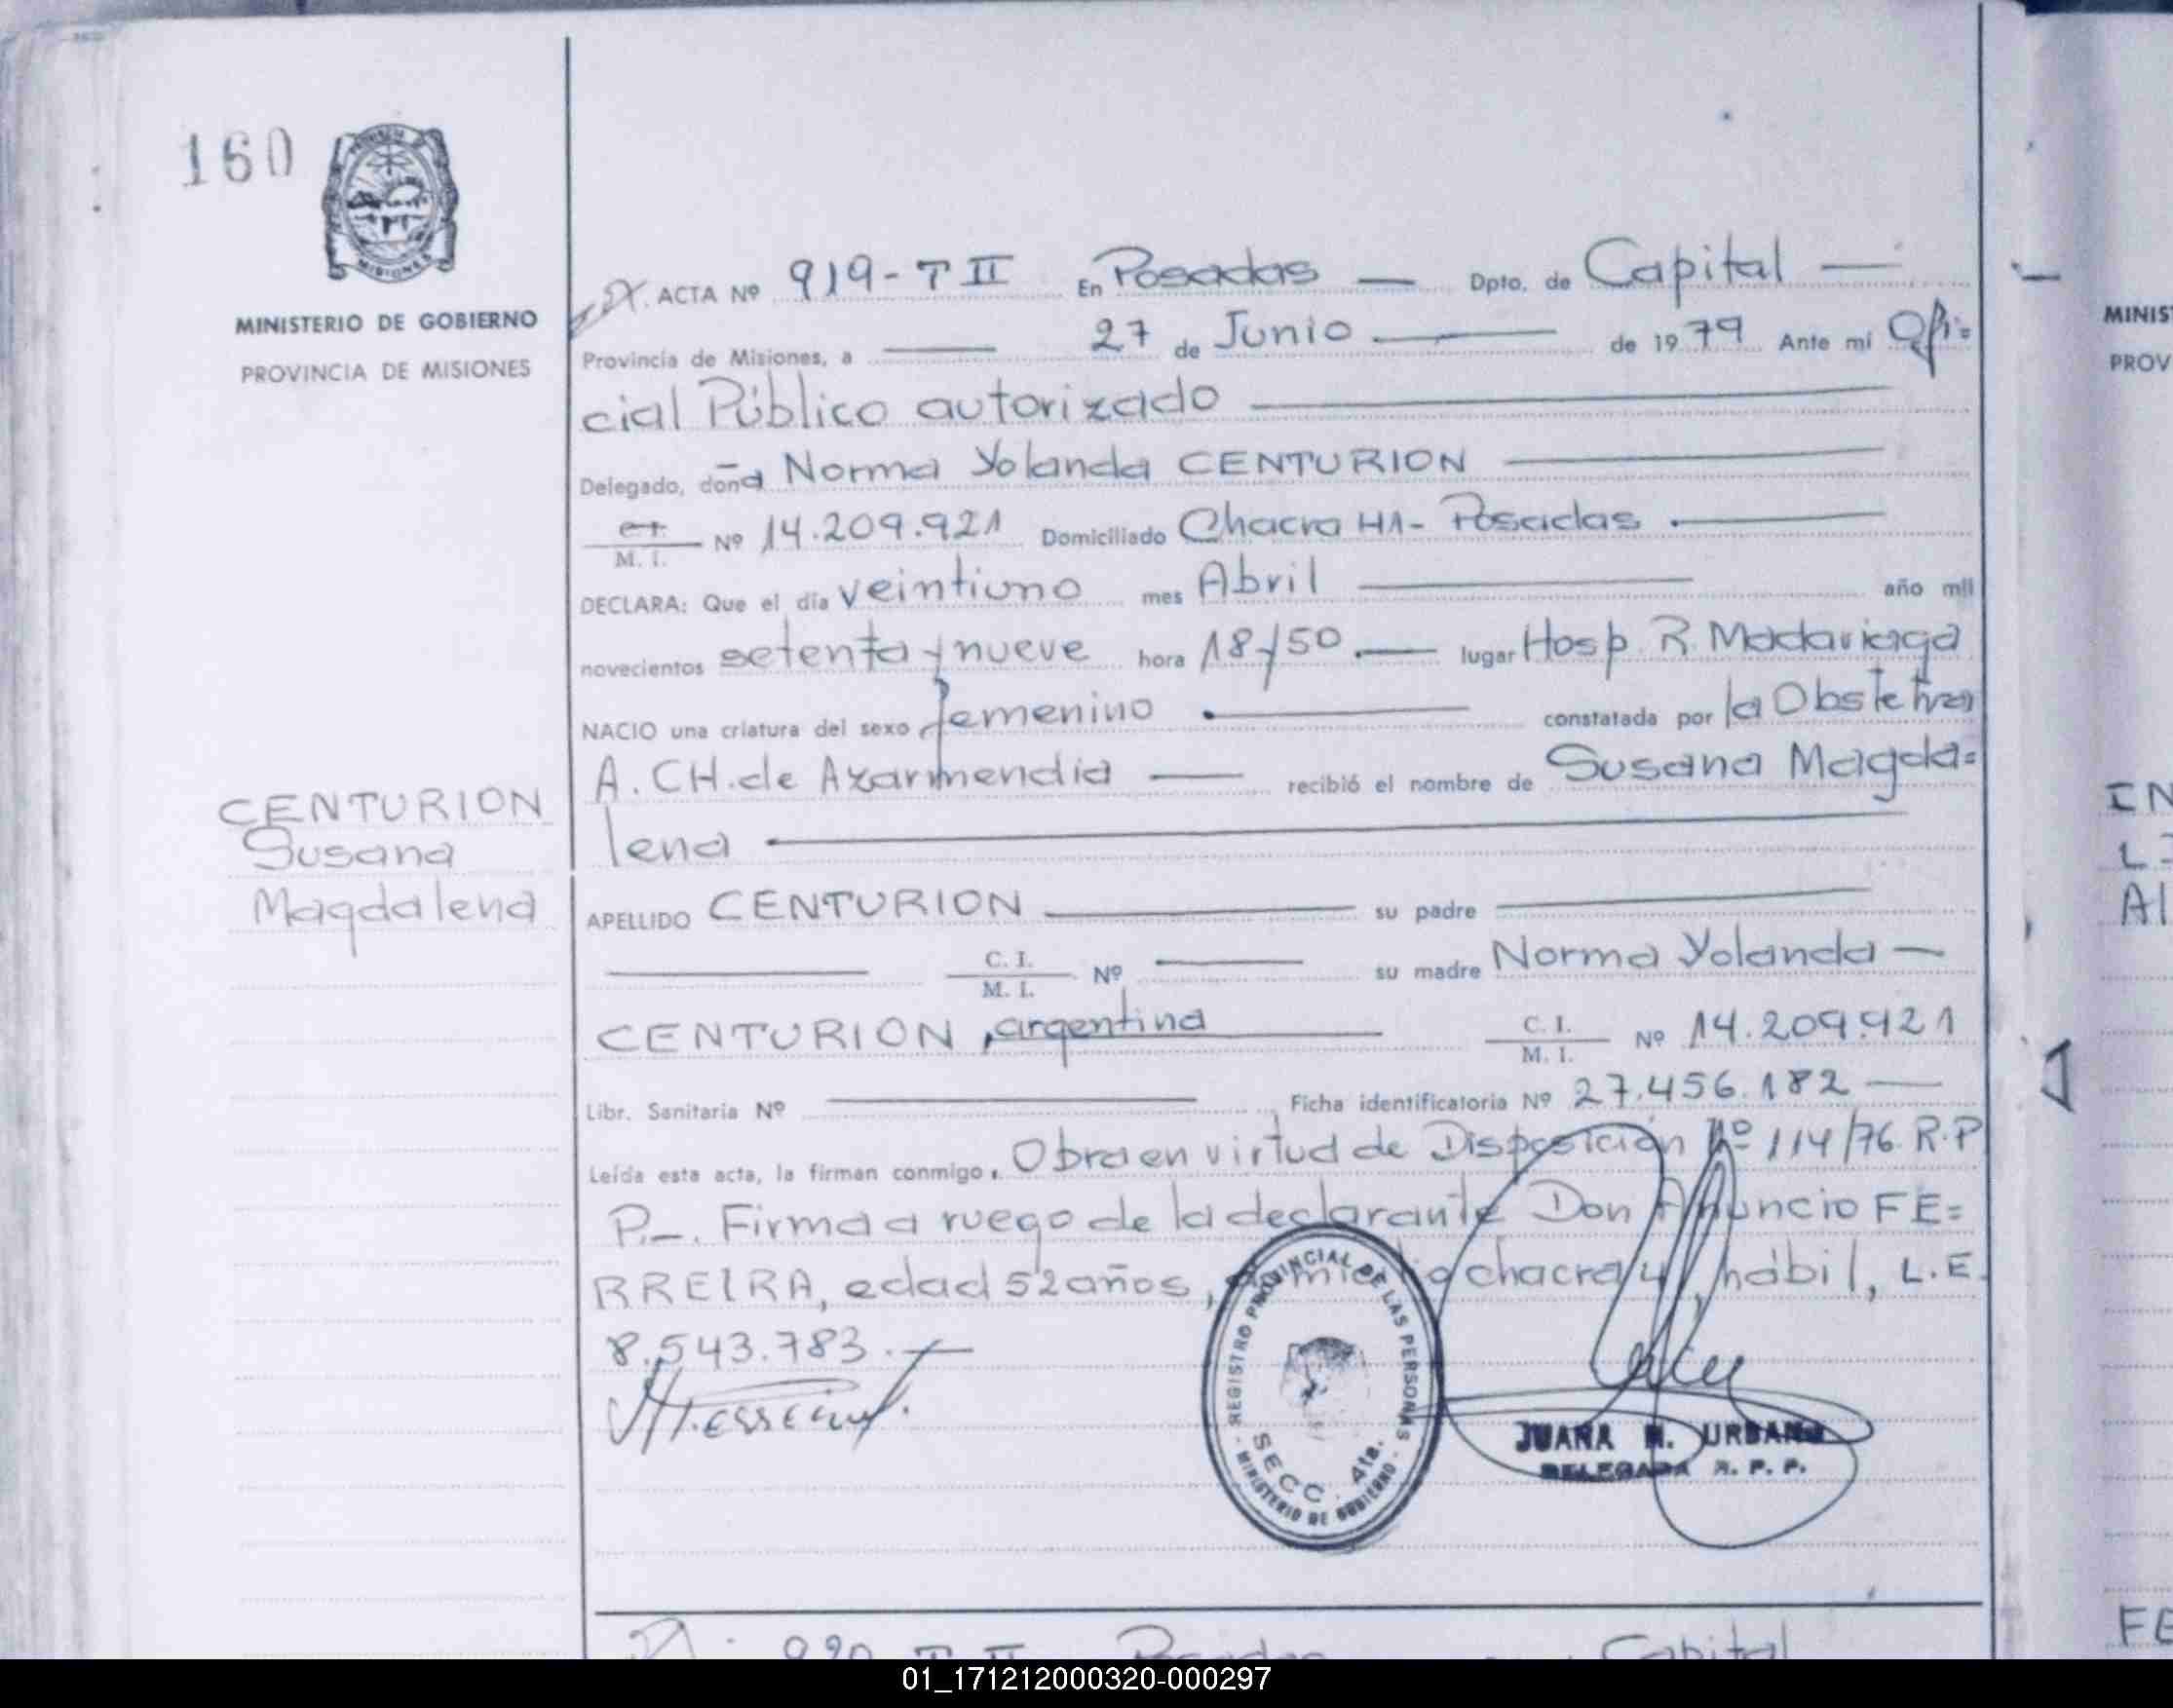 160
MISIONES
MINISTERIO DE GOBIERNO
PROVINCIA DE MISIONES
CENTURION
Susana
Magdalena
ACTA Nº 919-T II En Posadas — Dpto. de Capital —
Provincia de Misiones, a — 27 de Junio — de 1979 Ante mi Ofi=
cial Público autorizado —
Delegado, doña Norma Yolanda CENTURION —
C.I. M. I. Nº 14.209.921 Domiciliado Chacra - Posadas . —
DECLARA: Que el día veintiuno mes Abril — año mil
novecientos setenta y nueve hora 18/50. — lugar Hosp. R. Madariaga
NACIO una criatura del sexo femenino . — constatada por la Obstetra
A. CH. de Azarmendia — recibió el nombre de Susana Magda=
lena —
APELLIDO CENTURION — su padre —
— C. I. M. I. Nº — su madre Norma Yolanda —
CENTURION, argentina — C. I. M. I. Nº 14.209.921
Libr. Sanitaria Nº — Ficha identificatoria Nº 27.456.182 —
Leída esta acta, la firman conmigo. Obra en virtud de Disposición Nº 114/76 R.P
P.-. Firma a ruego de la declarante Don Anuncio FE=
RREIRA, edad 52 años, domicilio chacra 4, hábil, L.E.
8.543.783. —
REGISTRO PROVINCIAL DE LAS PERSONAS
SECC. 4ta.
MINISTERIO DE GOBIERNO
JUANA N. URBANO
DELEGADA R. P. P.
920 T II Posadas Capital
MINIS
PROV
IN
AL
FE
01_171212000320-000297